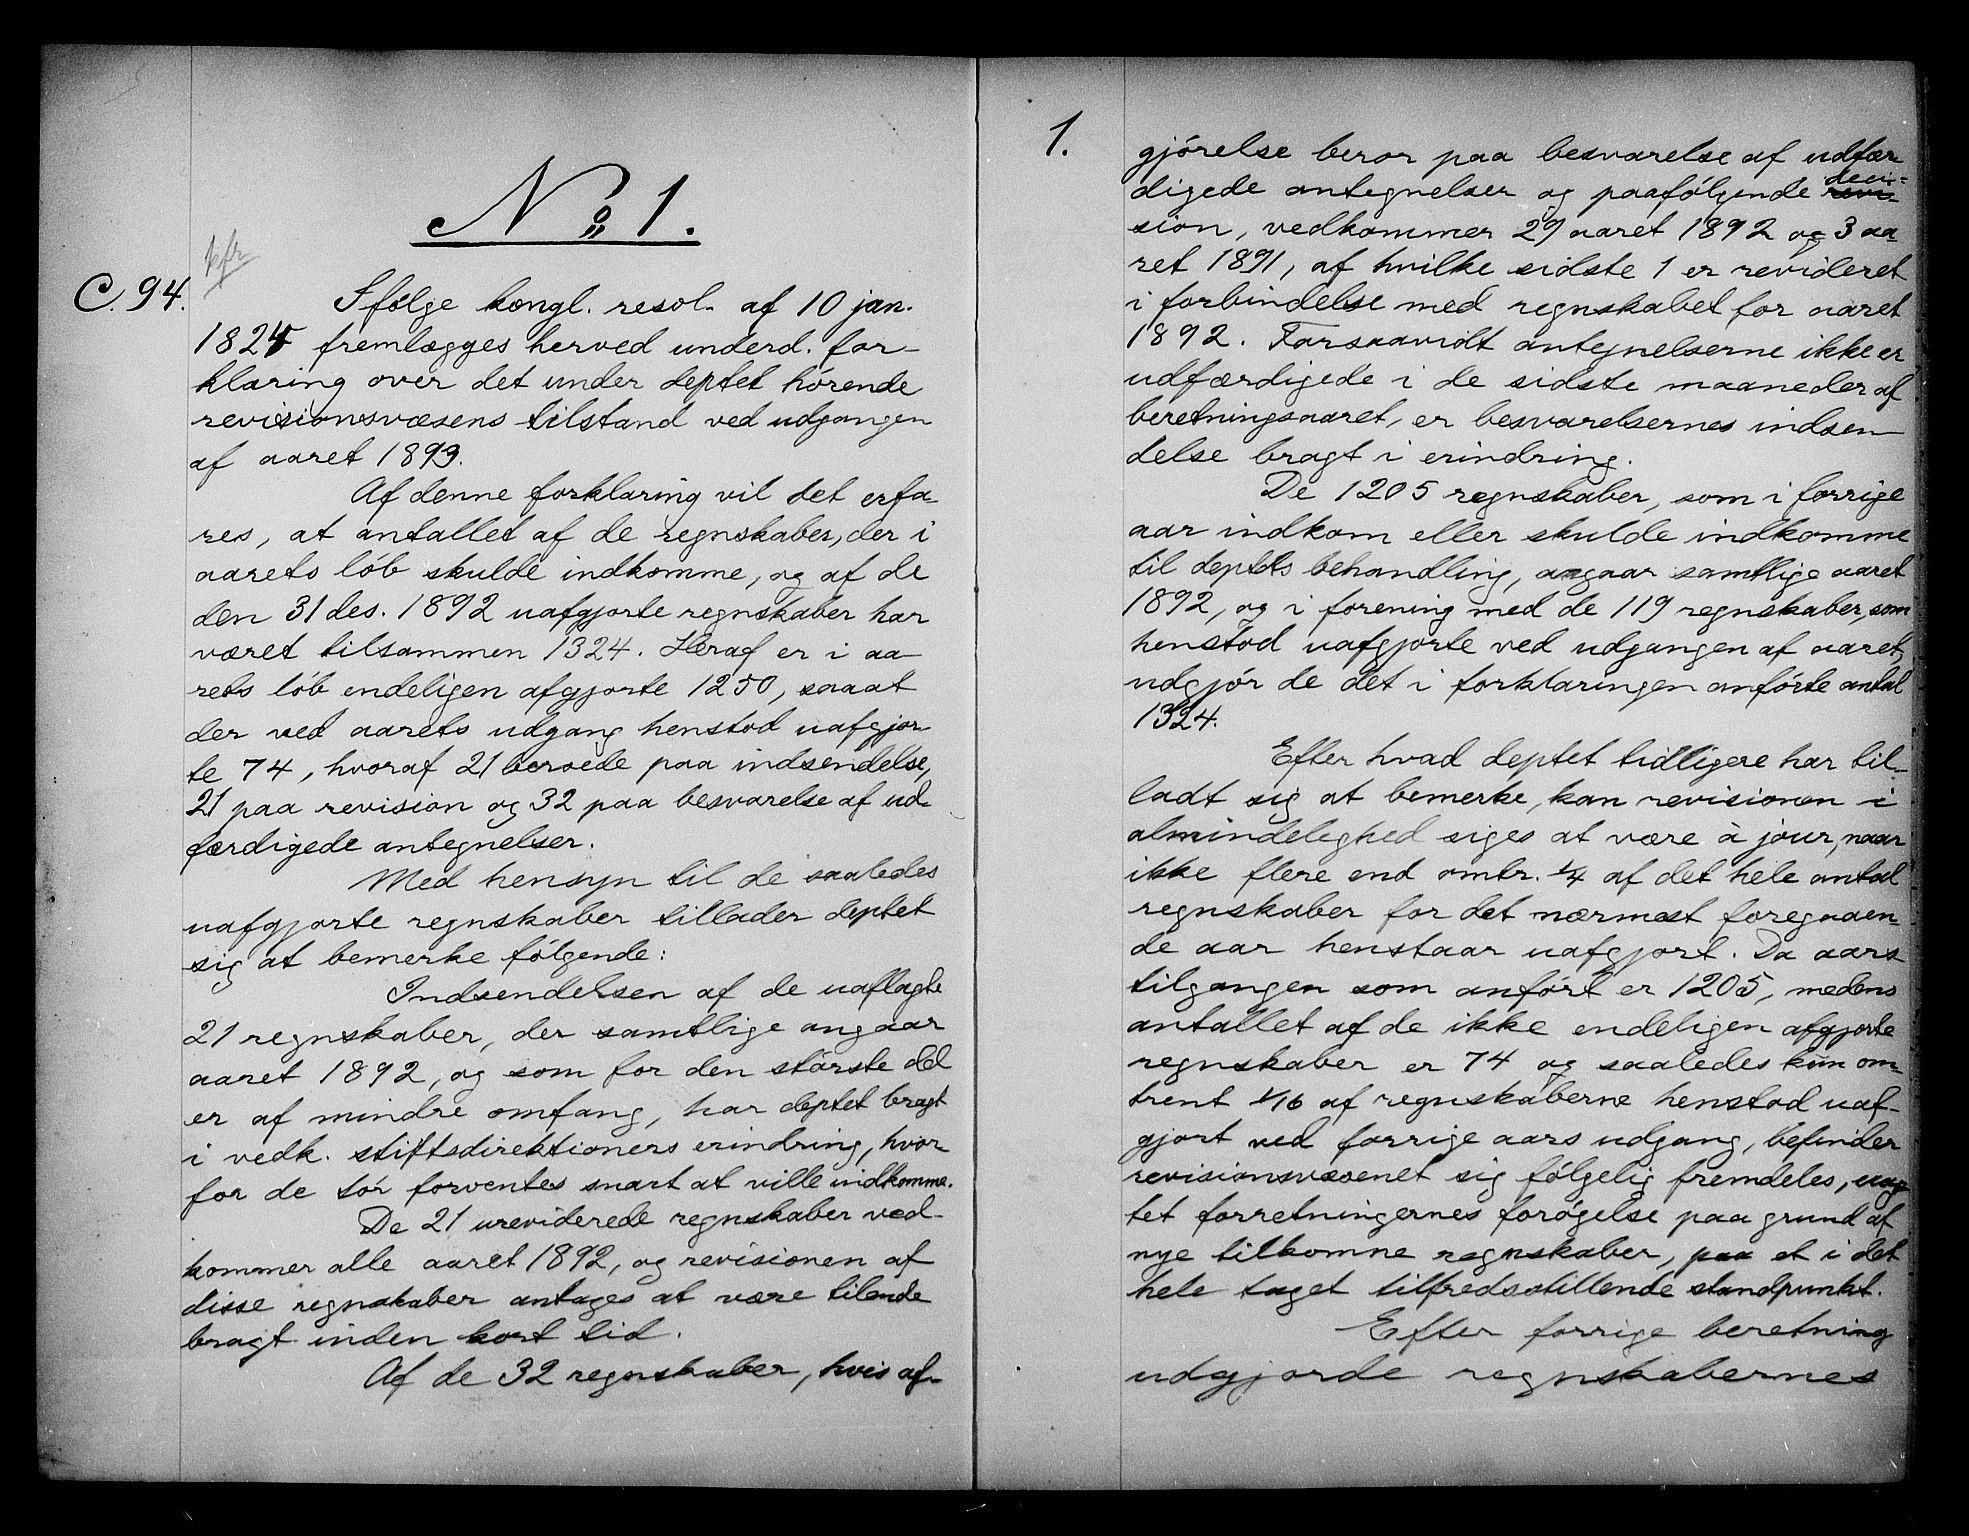 No 1.
kfr
C. 94.
Ifølge kongl. resol. af 10 jan.
1824 fremlægges herved underd. for-
klaring over det under deptet hørende
revisionsvæsens tilstand ved udgangen
af aaret 1893.
Af denne forklaring vil det erfa-
res, at antallet af de regnskaber, der i
aarets løb skulde indkomme, og af de
den 31 des. 1892 uafgjorte regnskaber har
været tilsammen 1324. Heraf er i aa-
rets løb endeligen afgjorte 1250, saaat
der ved aarets udgang henstod uafgjor-
te 74, hvoraf 21 beroede paa indsendelse,
21 paa revision og 32 paa besvarelse af ud-
færdigede antegnelser.
Med hensyn til de saaledes
uafgjorte regnskaber tillader deptet
sig at bemerke følgende:
Indsendelsen af de uaflagte
21 regnskaber, der samtlige angaar
aaret 1892, og som for den største del
er af mindre omfang, har deptet bragt
i vedk. stiftsdirektioners erindring, hvor-
for de tør forventes snart at ville indkomme.
De 21 ureviderede regnskaber ved-
kommer alle aaret 1892, og revisionen af
disse regnskaber antages at være tilende
bragt inden kort tid.
Af de 32 regnskaber, hvis af-
1.
gjørelse beror paa besvarelse af udfær-
digede antegnelser og paafølgende revi- deci-
sion, vedkommer 29 aaret 1892 og 3 aa-
ret 1891, af hvilke sidste 1 er revideret
i forbindelse med regnskabet for aaret
1892. Forsaavidt antegnelserne ikke er
udfærdigede i de sidste maaneder af
beretningsaaret, er besvarelsernes indsen-
delse bragt i erindring.
De 1205 regnskaber, som i forrige
aar indkom eller skulde indkomme
til deptets behandling, angaar samtlige aaret
1892, og i forening med de 119 regnskaber, som
henstod uafgjorte ved udgangen af aaret,
udgjør de det i forklaringen anførte antal
1324.
Efter hvad deptet tidligere har til-
ladt sig at bemerke, kan revisionen i
almindelighed siges at være à jour, naar
ikke flere end omtr. 1/4 af det hele antal
regnskaber for det nærmest foregaaen-
de aar henstaar uafgjort. Da aars-
tilgangen som anført er 1205, medens
antallet af de ikke endeligen afgjorte
regnskaber er 74 og saaledes kun om-
trent 1/16 af regnskaberne henstod uaf-
gjort ved forrige aars udgang, befinder
revisionsvæsenet sig følgelig fremdeles, uag-
tet forretningernes forøgelse paa grund af
nye tilkomne regnskaber, paa et i det
hele taget tilfredsstillende standpunkt.
Efter forrige beretning
udgjorde regnskabernes